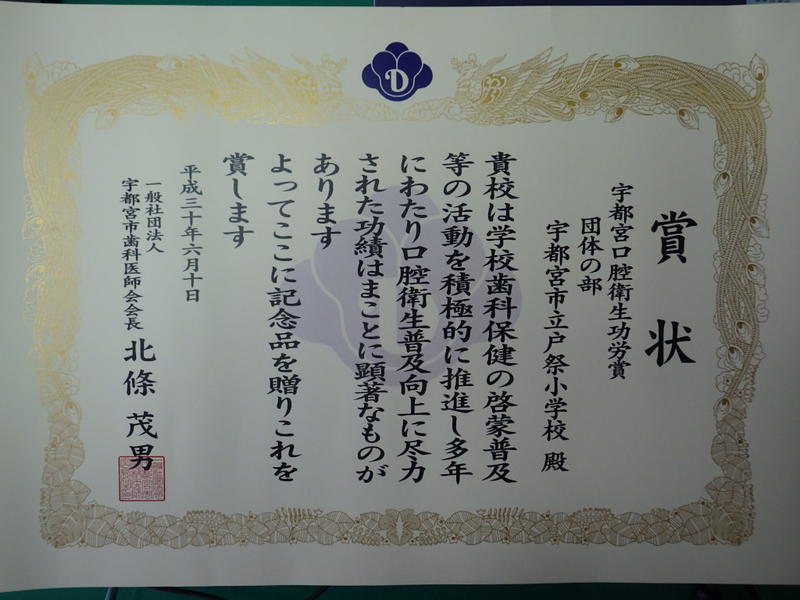 D
賞状
宇都宮口腔衛生功労賞
団体の部
宇都宮市立戸祭小学校 殿
貴校は学校歯科保健の啓蒙普及
等の活動を積極的に推進し多年
にわたり口腔衛生普及向上に尽力
された功績はまことに顕著なものが
あります
よってここに記念品を贈りこれを
賞します
平成三十年六月十日
一般社団法人
宇都宮市歯科医師会会長 北條茂男